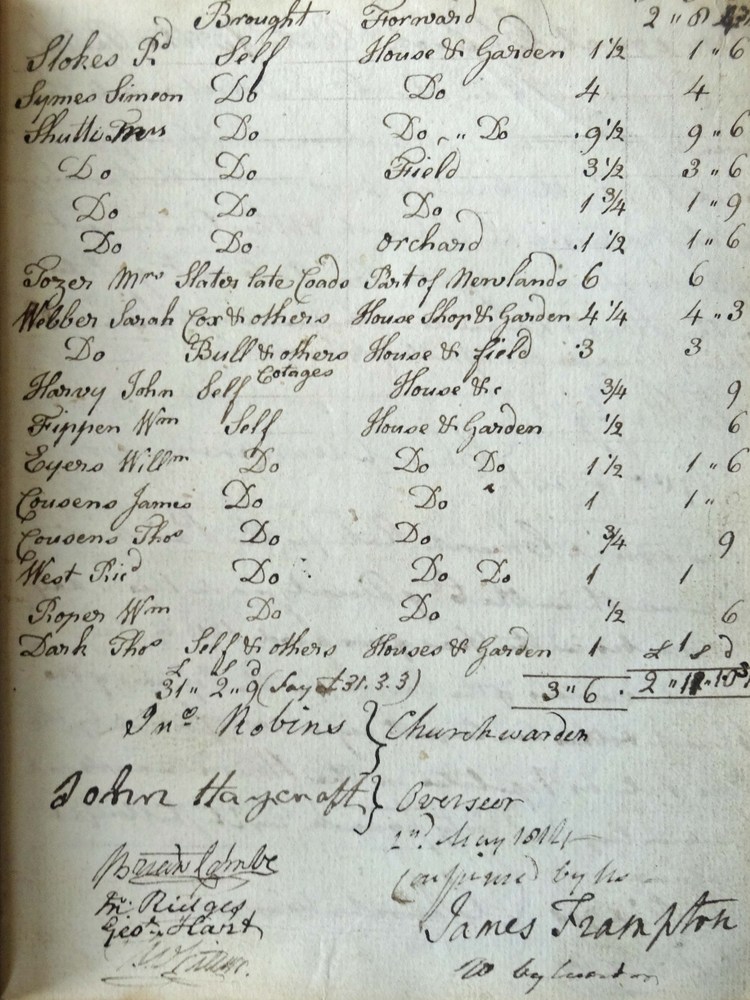 Brought Forward 2 " 8
Stokes Rd Self House & Garden 1 1/2 1 " 6
Symes Simeon Do Do 4 4
Shuttl Mrs Do Do " Do . 9 1/2 9 " 6
Do Do Field 3 1/2 3 " 6
Do Do Do 1 3/4 1 " 9
Do Do Orchard . 1 1/2 1 " 6
Tozer Mrs Slater late Coads Part of Newlands 6 6
Webber Sarah Cox & others House Shop & Garden 4 1/4 4 " 3
Do Bull & others House & field . 3 3
Cotages
Harvy John Self House &c 3/4 9
Fippen Wm Self House & Garden 1/2 6
Eyers Willm Do Do Do 1 1/2 1 " 6
Cousens James Do Do 1 1 "
Cousens Thos Do Do 3/4 9
West Ricd Do Do Do 1 1
Roper Wm Do Do 1/2 6
Dark Thos Self & others Houses & Garden 1 1
£ s d £ s d
31 " 2 " 9 (Say £31.3.3) 3 " 6 . 2 "
Jno. Robins } Churchwarden
John Haycroft } Overseer
2nd May 1814
Brian Combe Confirmed by us
Wm. Ridges
Geo. Hart James Frampton